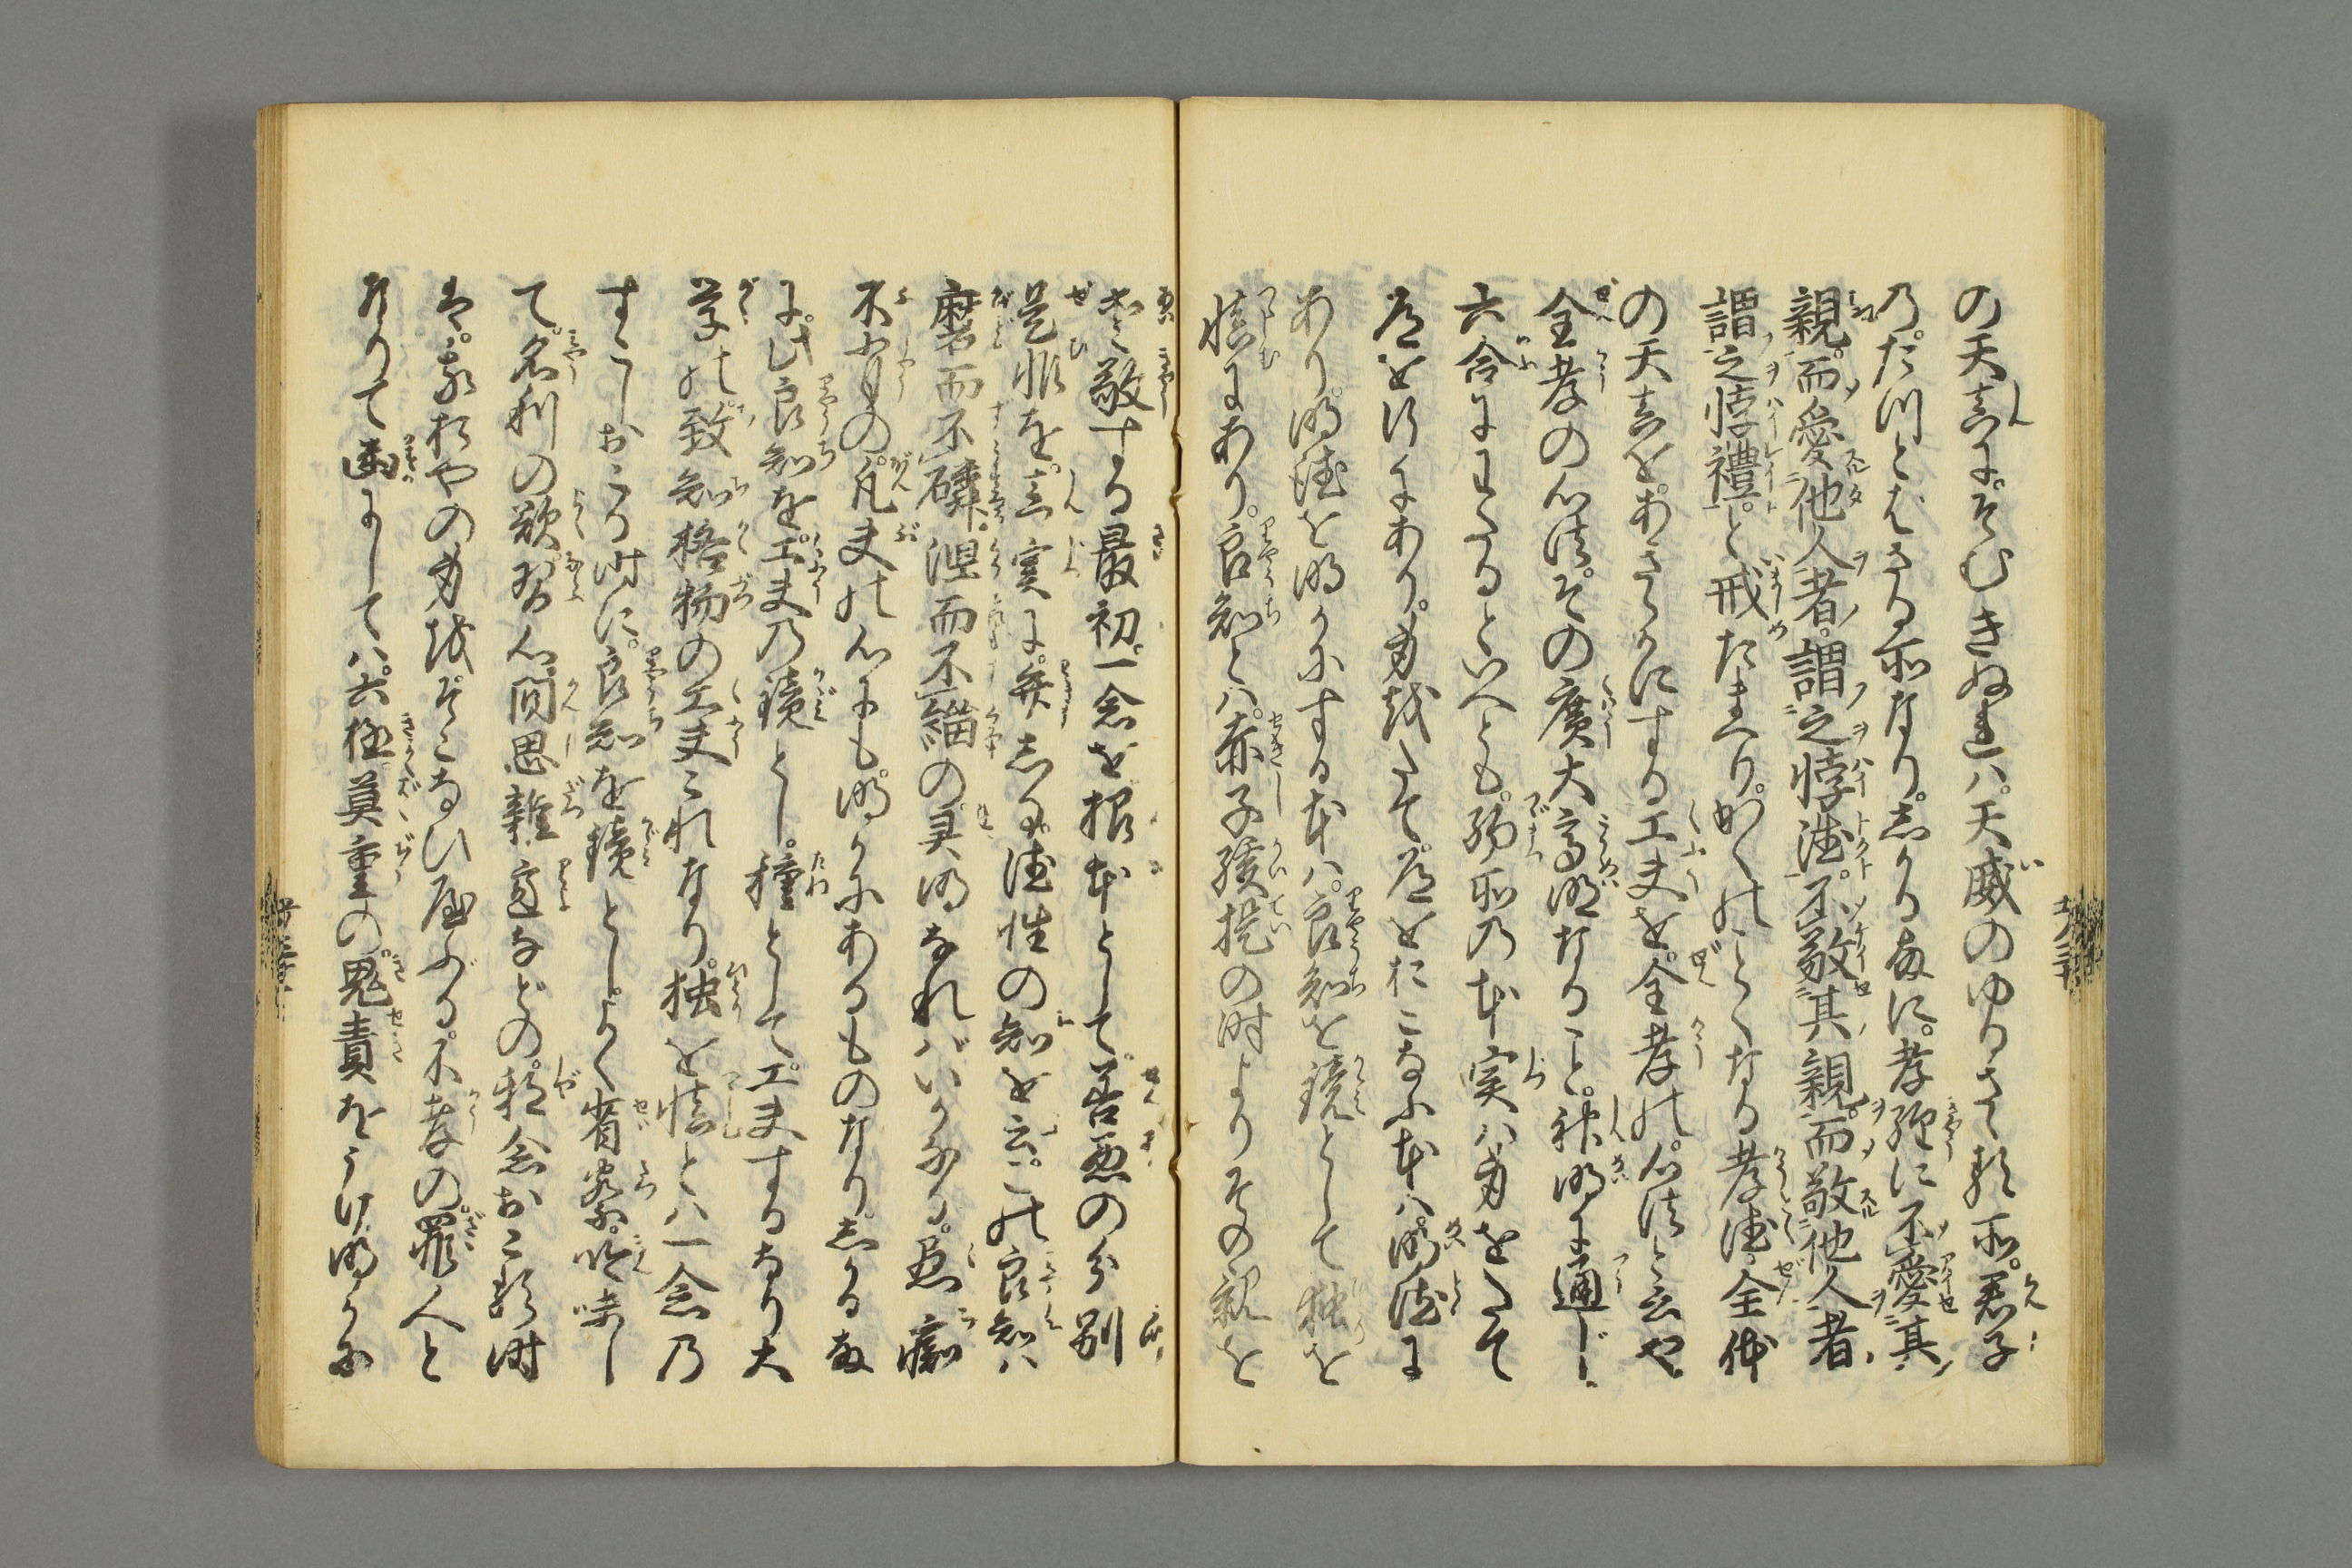 の天真にそむきぬれハ。天威のゆるさゝる所。君子
の。たつとばさる所なり。しかる故に。孝経に不愛其
親。而愛他人者。謂之悖徳。不敬其親。而敬他人者
謂之悖禮。と戒たまへり。かくのことくなる孝徳。全体
の天真を。あきらかにする工夫を。全孝の。心法と云や
全孝の心法。その廣大高明なること。神明に通じ。
六合にわたるといへとも。約所の本実ハ身をたて
道を行にあり。身をたて。道をおこなふ本ハ。明徳に
あり。明徳を明かにする本ハ。良知を鏡として独を
慎にあり。良知とハ。赤子孩提の時よりその親を
愛敬する最初。一念を根本として。善悪の分別
是非を。真実に。弁しる。徳性の知を云。この良知ハ
磨而不磷。涅而不緇の。霊明なれバ。いかなる。愚痴
不肖の。凡夫の心にも。明かにあるものなり。しかる故
に。此良知を。工夫の鏡とし。種として。工夫するなり大
学の。致知格物の工夫これなり。独を慎とハ一念の
すこしおこる時に。良知を鏡とし。よく省察。吟味し
て。名利の欲。習心間思雑慮などの。邪念おこる時
は。我おやの身をそこなひ。やぶる。不孝の。罪人と
なりて幽にしてハ。六極莫重の。鬼責をうけ。明かに